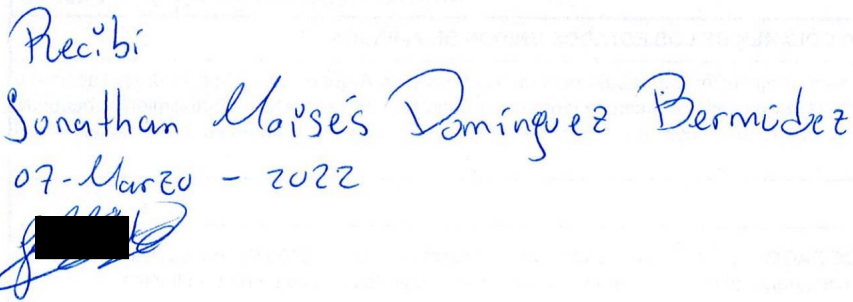 Recibí
Jonathan Moisés Domínguez Bermúdez
07-Marzo - 2022